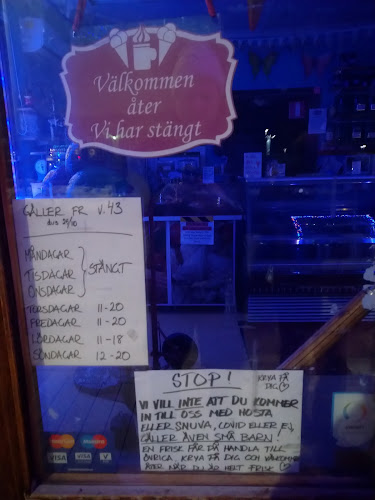 Välkommen
åter
Vi har stängt
GÄLLER FR V.43
MÅNDAGAR
TISDAGAR
ONSDAGAR
STÄNGT
TORSDAGAR 11-20
FREDAGAR 11-20
LÖRDAGAR 11-18
SÖNDAGAR 12-20
STOP!
KRYA PÅ
DIG
VI VILL INTE ATT DU KOMMER
IN TILL OSS MED HOSTA
ELLER SNUVA, COVID ELLER EJ,
GÄLLER ÄVEN SMÅ BARN!
EN FRISK FÅR DÅ HANDLA TILL
ÖVRIGA. KRYA PÅ DIG OCH VÄLKOMMEN
ÅTER NÄR DU ÄR HELT FRISK
VISA VISA